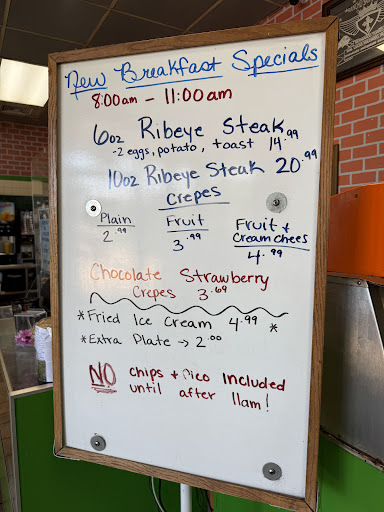 New Breakfast Specials
8:00am - 11:00am
6oz Ribeye Steak
-2 eggs, potato, toast 14.99
10oz Ribeye Steak 20.99
Crepes
Plain
2.99
Fruit
3.99
Fruit +
Creamchees
4.99
Chocolate Strawberry
Crepes 3.69
*Fried Ice Cream 4.99 *
*Extra Plate → 2.00
NO chips + Pico Included
until after 11am!